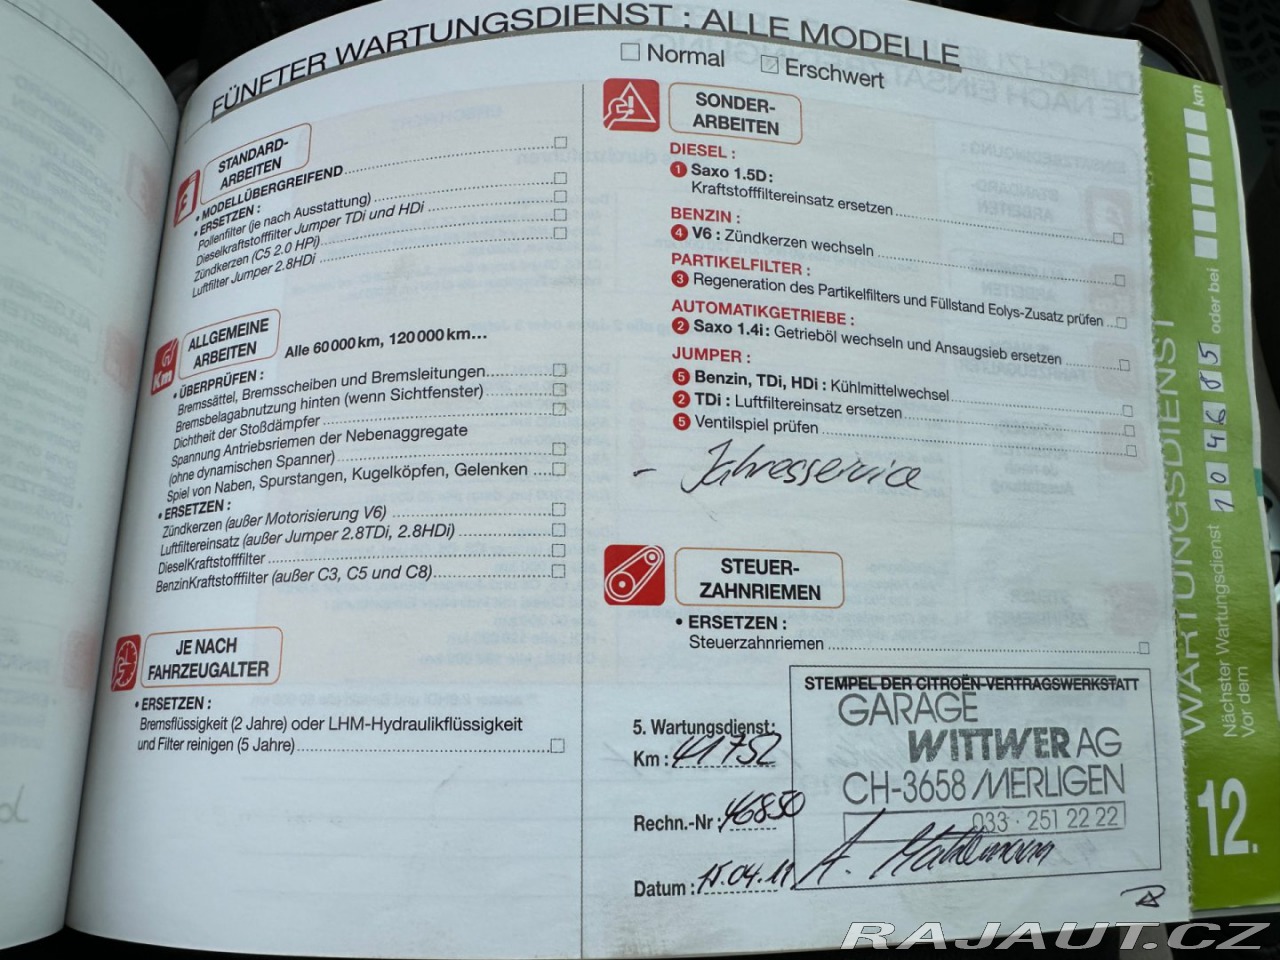 FÜNFTER WARTUNGSDIENST : ALLE MODELLE
Normal
Erschwert
STANDARD-
ARBEITEN
• MODELLÜBERGREIFEND
• ERSETZEN :
Pollenfilter (je nach Ausstattung)
Dieselkraftstofffilter Jumper TDi und HDi
Zündkerzen (C5 2.0 HPi)
Luftfilter Jumper 2.8HDi
Km
ALLGEMEINE
ARBEITEN
Alle 60 000 km, 120 000 km...
• ÜBERPRÜFEN :
Bremssättel, Bremsscheiben und Bremsleitungen
Bremsbelagabnutzung hinten (wenn Sichtfenster)
Dichtheit der Stoßdämpfer
Spannung Antriebsriemen der Nebenaggregate
(ohne dynamischen Spanner)
Spiel von Naben, Spurstangen, Kugelköpfen, Gelenken
• ERSETZEN :
Zündkerzen (außer Motorisierung V6)
Luftfiltereinsatz (außer Jumper 2.8TDi, 2.8HDi)
DieselKraftstofffilter
BenzinKraftstofffilter (außer C3, C5 und C8)
JE NACH
FAHRZEUGALTER
• ERSETZEN :
Bremsflüssigkeit (2 Jahre) oder LHM-Hydraulikflüssigkeit
und Filter reinigen (5 Jahre)
SONDER-
ARBEITEN
DIESEL :
1 Saxo 1.5D :
Kraftstofffiltereinsatz ersetzen
BENZIN :
4 V6 : Zündkerzen wechseln
PARTIKELFILTER :
3 Regeneration des Partikelfilters und Füllstand Eolys-Zusatz prüfen
AUTOMATIKGETRIEBE :
2 Saxo 1.4i : Getrieböl wechseln und Ansaugsieb ersetzen
JUMPER :
5 Benzin, TDi, HDi : Kühlmittelwechsel
2 TDi : Luftfiltereinsatz ersetzen
5 Ventilspiel prüfen
- Jahresservice
STEUER-
ZAHNRIEMEN
• ERSETZEN :
Steuerzahnriemen
STEMPEL DER CITROËN-VERTRAGSWERKSTATT
GARAGE
WITTWER AG
CH-3658 MERLIGEN
033 · 251 22 22
A. Mühlemann
5. Wartungsdienst:
Km : 41752
Rechn.-Nr : 46850
Datum : 15.04.11
WARTUNGSDIENST
Nächster Wartungsdienst
Vor dem
oder bei
km
12.
RAJAUT.CZ